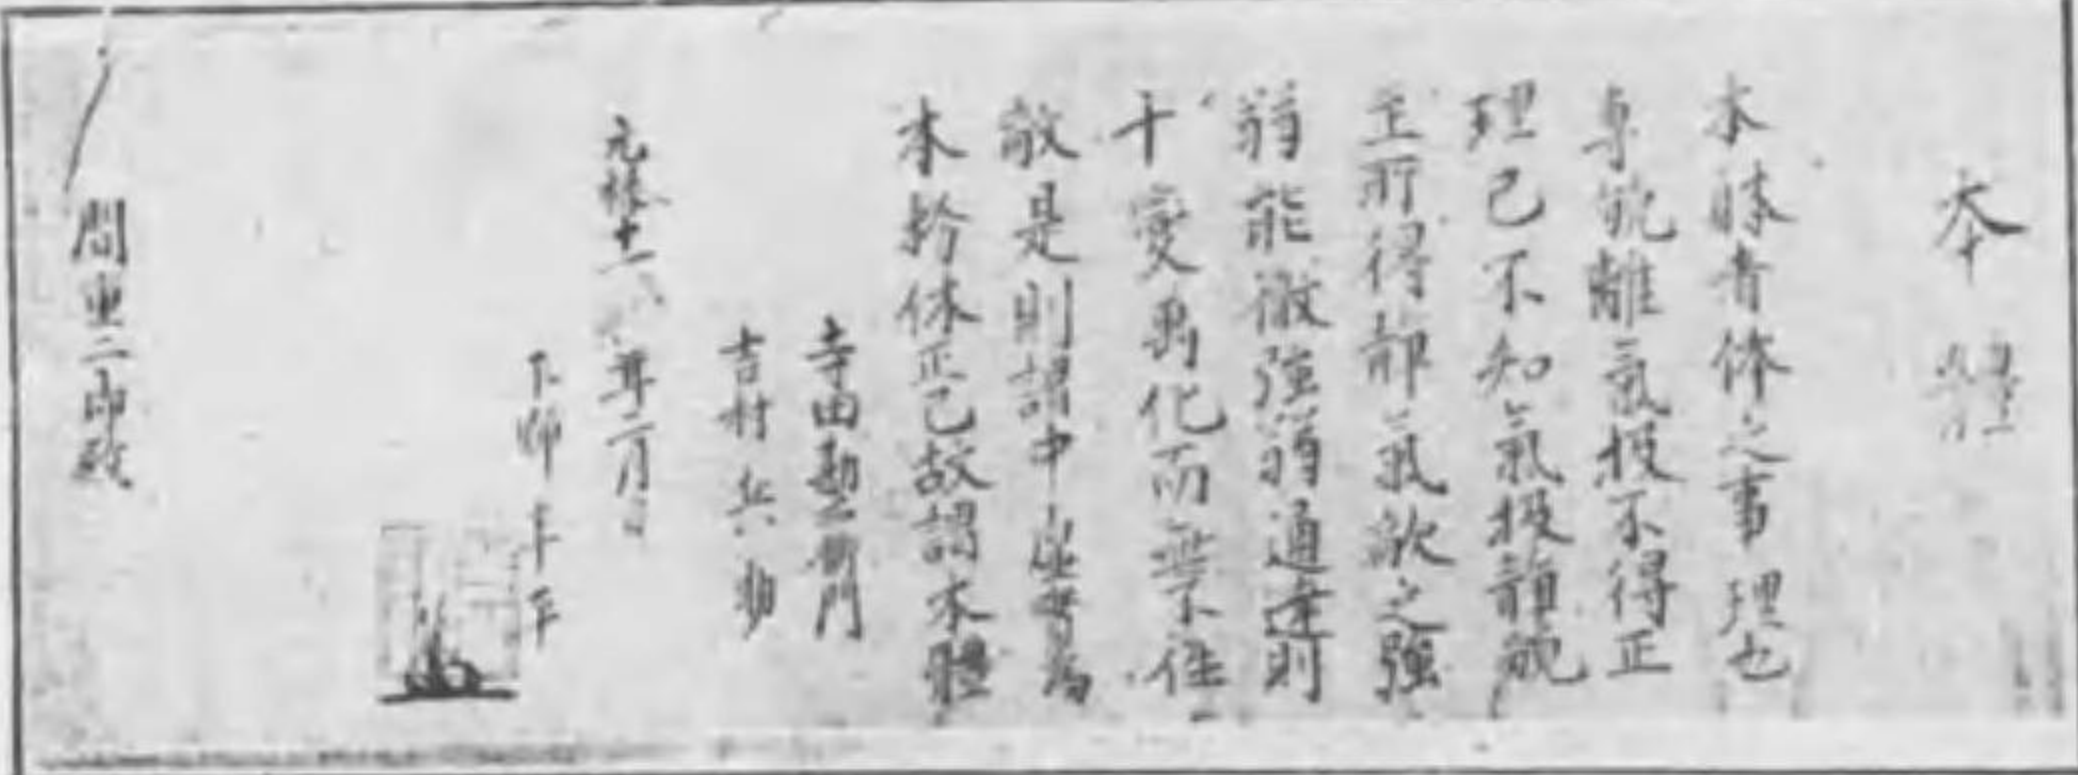 本體
本躰者体之事理也
專就離氣扱不得正
理己不知氣扱離就
正所得郡氣歛之強
弱能徹強弱通達則
十變萬化而無不住
敵是則謂中虚安爲
本於体正己故謂本體
寺田勘右衛門
吉村兵助
元禄十一年二月日
下師
間重二郎殿